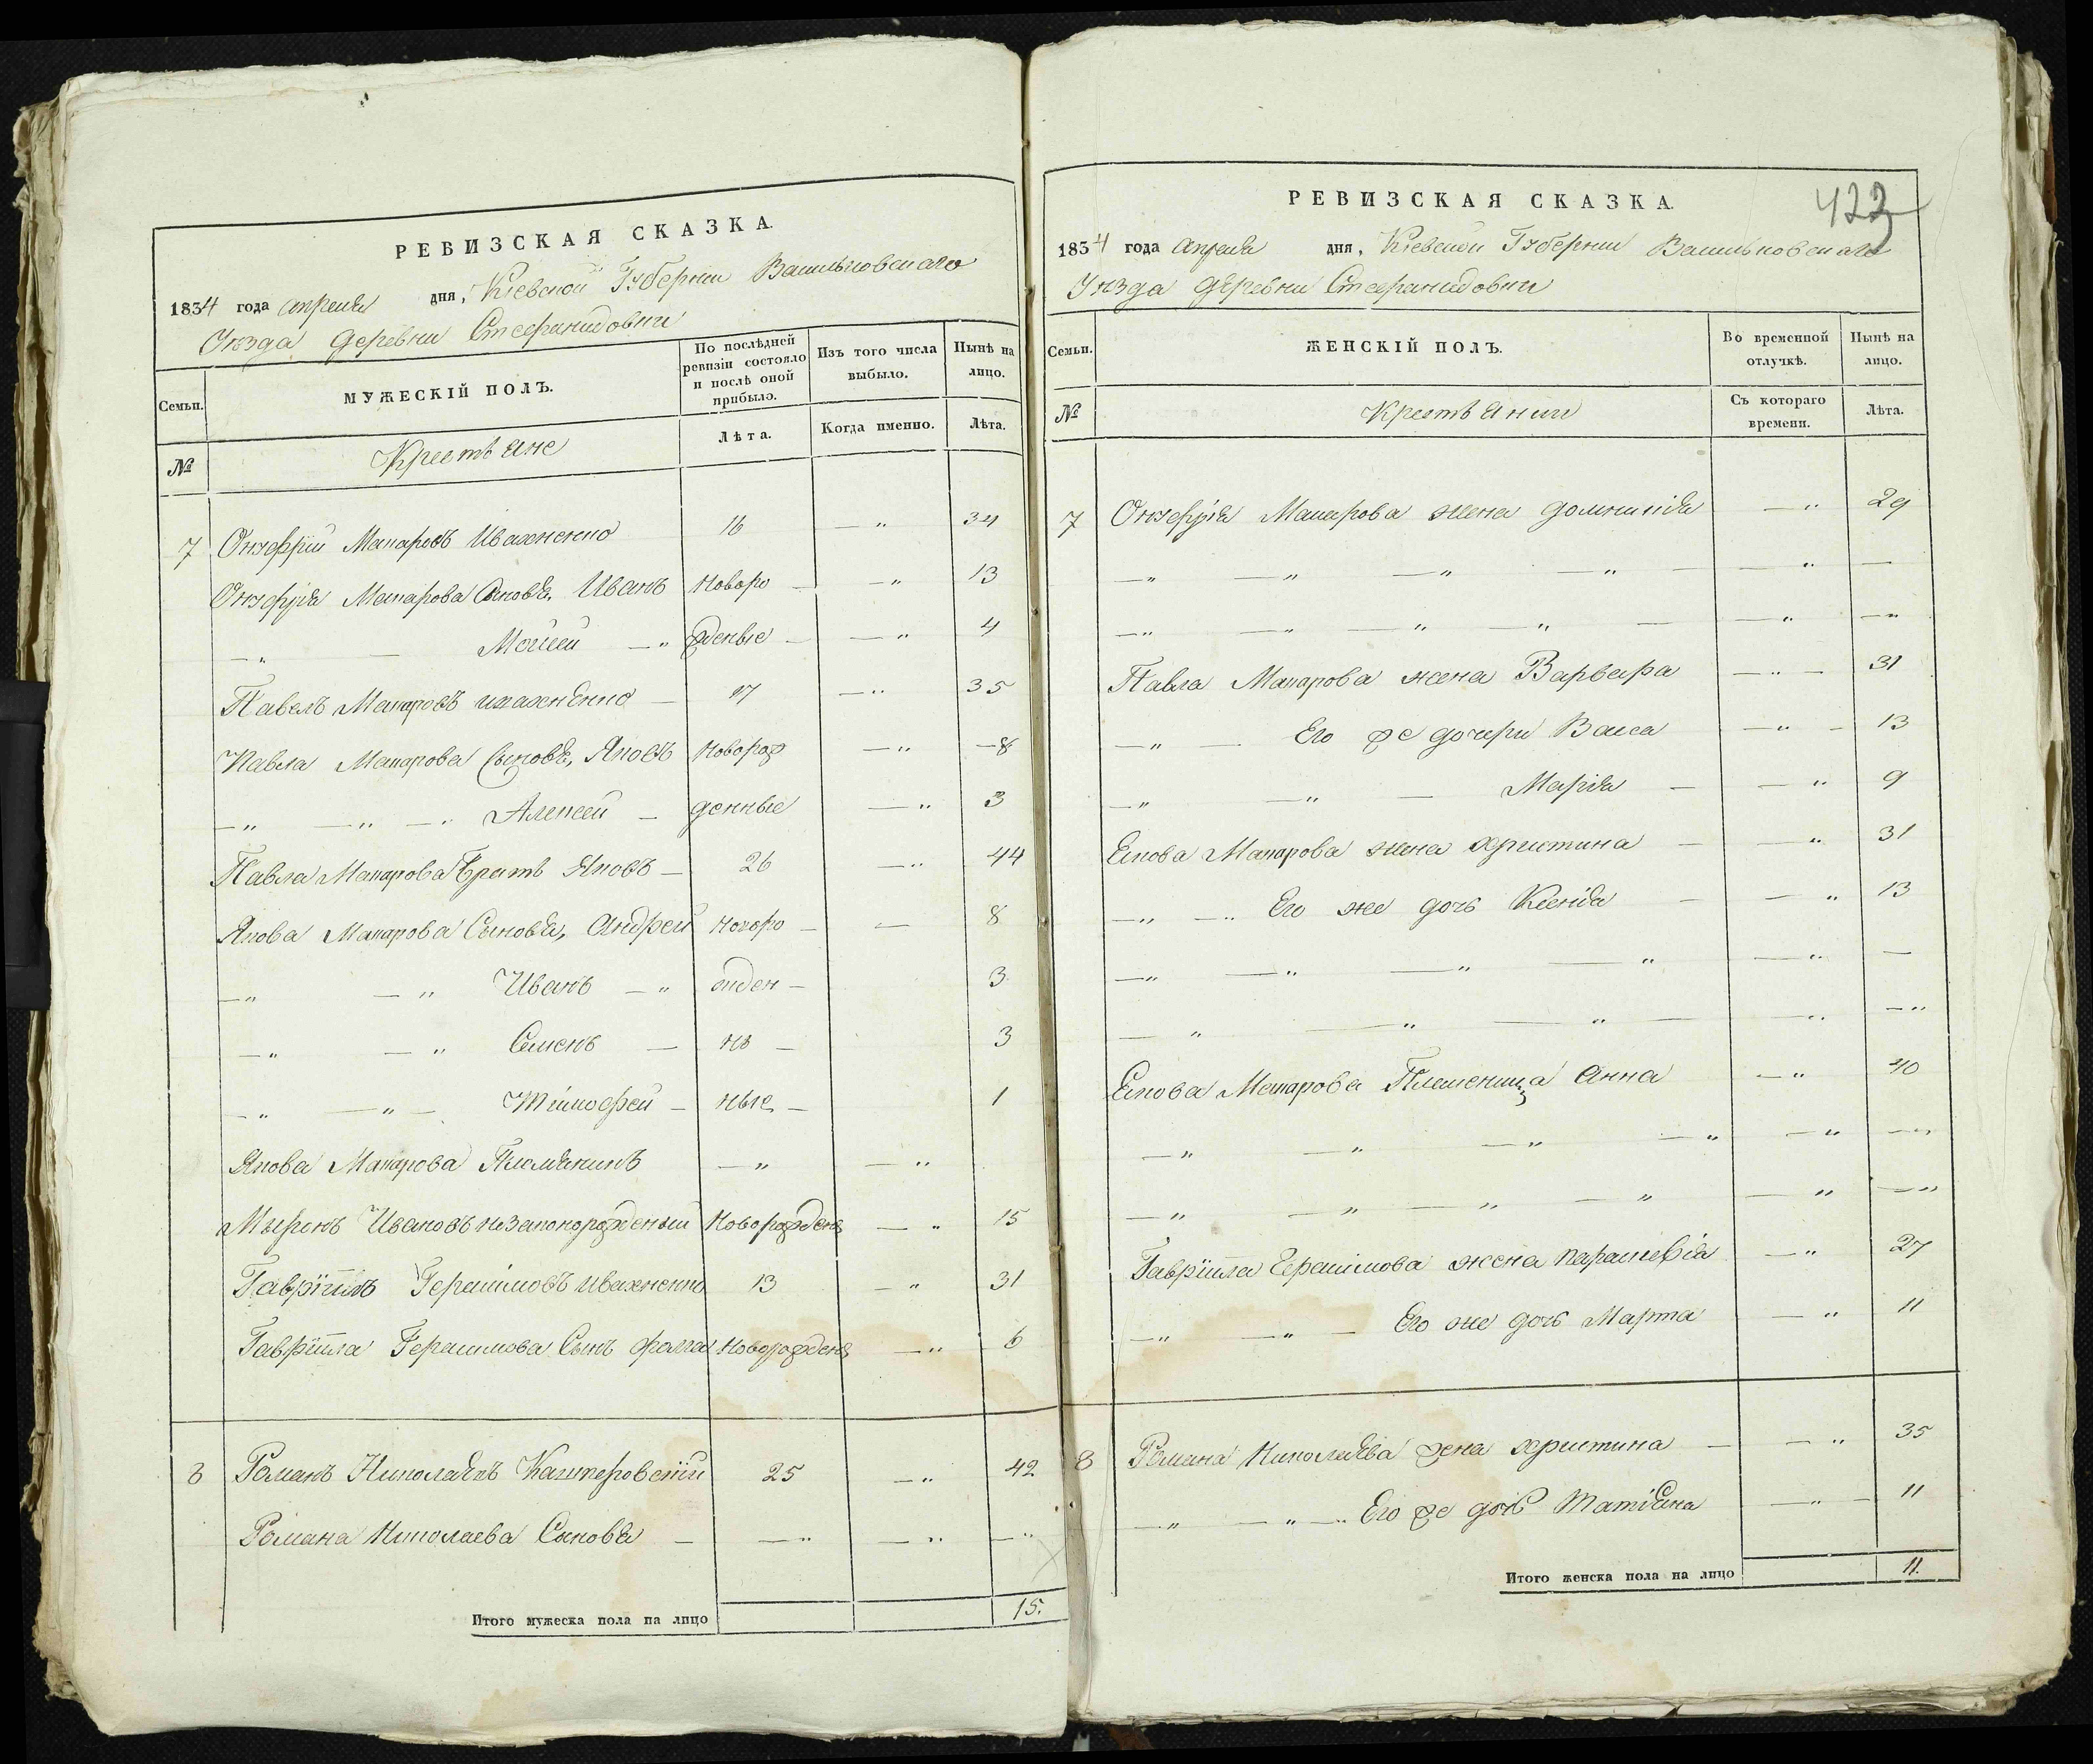 РЕВИЗСКАЯ СКАЗКА.
1834 года апреля дня, Кіевской Губерніи Васильковскаго
Уѣзда деревни
Семьи.
МУЖЕСКІЙ ПОЛЪ.
По послѣдней ревизіи состояло и послѣ оной прибыло.
Изъ того числа выбыло.
Нынѣ на лицо.
№
Крестьяне
Лѣта.
Когда именно.
Лѣта.
7 Онуфрій Макаровъ Ивахненко 16 — „ 34
Онуфрія Макарова Сыновья, Иванъ Новоро — — „ 13
— „ — Моисей — „ жденые — — „ 4
Павелъ Макаровъ Ивахненко — 17 — „ 35
Павла Макарова Сыновья, Яковъ Новорож — „ — 8
— „ — „ — „ Алексей — денные — „ 3
Павла Макарова Братъ Яковъ — 26 — „ 44
Якова Макарова Сыновья, Андрей Новоро — — 8
— „ — „ Иванъ — „ жден — 3
— „ — „ Семенъ — нъ — 3
— „ — „ — Тімофей — ные — 1
Якова Макарова Племянникъ — „ — „
Мыронъ Ивановъ незаконорожденый Новорожденъ — „ 15
Гавріилъ Герасимовъ Ивахненко 13 — „ 31
Гавріила Герасимова Сынъ Новорожденъ — „ 6
8 Романъ Николаевъ Кашперовскій 25 — „ 42
Романа Николаева Сыновья — — „ — „ — „
Итого мужеска пола на лицо 15.
РЕВИЗСКАЯ СКАЗКА.
423
1834 года апреля дня, Кіевской Губерніи Васильковскаго
Уѣзда деревни
Семьи.
ЖЕНСКІЙ ПОЛЪ.
Во временной отлучкѣ.
Нынѣ на лицо.
№
Крестьянки
Съ котораго времени.
Лѣта.
7 Онуфрія Макарова жена Домникія — „ 29
— „ — „ — „ — „ — „ —
— „ — „ — „ — „ — — „ — „
Павла Макарова жена Варвара — „ — 31
— „ — Его же дочери Васса — „ — 13
— „ — „ — Марія — — „ 9
Якова Макарова жена Христина — — „ 31
— „ — „ Его же дочь Ксенія — — „ 13
— „ — „ — „ — „ — „ —
— „ — „ — „ — — „ — „
Якова Макарова Племеница Анна — „ 40
— „ — „ — „ — „ — „ — „
— „ — „ — „ — „ — „ — „
Гавріила Герасимова жена Параскевія — „ 27
— „ — „ — Его же дочь Марта — „ 11
8 Романа Николаева жена Христина — — „ 35
— „ — „ — „ Его же дочь Татіяна — „ — 11
Итого женска пола на лицо 11.